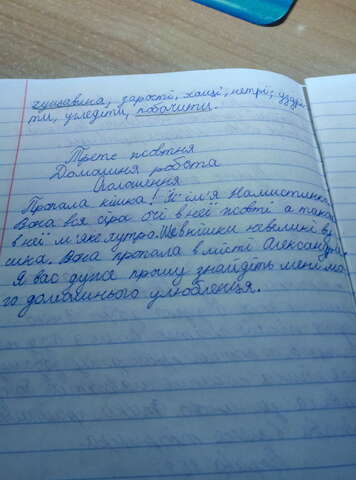 гущавина, зарості, хащі, нетрі; уздрі-
ти, угледіти, побачити.
Третє жовтня
Домашня робота
Оголошення
Пропала кішка! Її ім'я Намистинка.
Вона вся сіра очі в неї жовті а також
в неї м'яке хутро. Ще в кішки невеликі ву
шка. Вона пропала в місті Олександрія.
Я вас дуже прошу знайдіть мені мо-
го домашнього улюбленця.